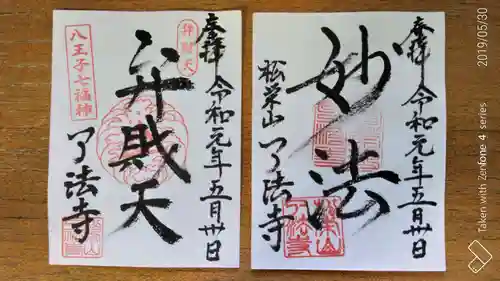 奉拝
令和元年五月卅日
弁財天
弁財天
八王子七福神
了法寺
奉拝
令和元年五月卅日
妙法
松栄山
了法寺
2019/05/30
Taken with Zenfone 4 series